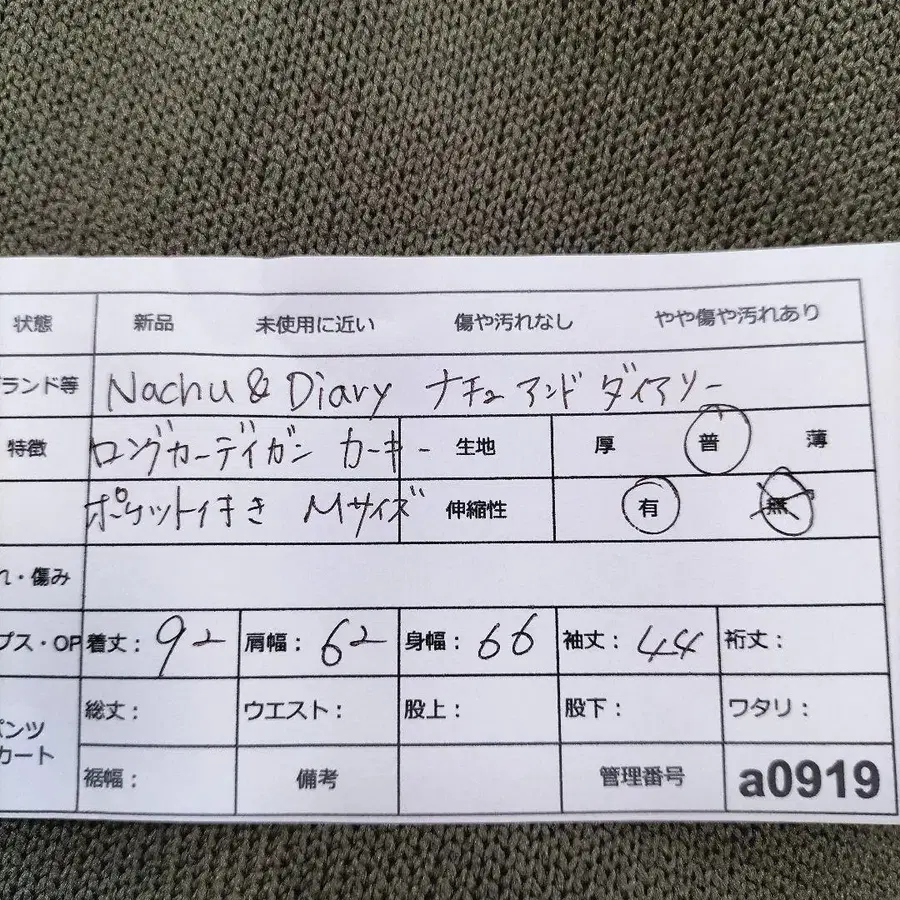 状態 新品 未使用に近い 傷や汚れなし やや傷や汚れあり
ランド等 Nachu & Diary ナチュアンドダイアリー
特徴 ロングカーディガン カーキー 生地 厚 普 薄
ポケット付き Mサイズ 伸縮性 有 無
れ・傷み
プス・OP 着丈： 92 肩幅： 62 身幅： 66 袖丈： 44 裄丈：
パンツ 総丈： ウエスト： 股上： 股下： ワタリ：
カート 裾幅： 備考 管理番号 a0919